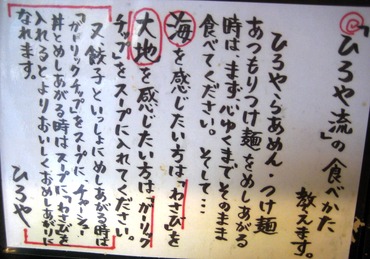 ◎「ひろや流」の食べかた
教えます。
ひろや・らあめん・つけ麺
あつもりつけ麺をめしあがる
時は、まず心ゆくまでそのまま
食べてください。そして…
海を感じたい方は「わさび」を
大地を感じたい方は「ガーリック
チップ」をスープに入れてください。
又、餃子といっしょにめしあがる時は
「ガーリックチップ」をスープに、チャーシュー
丼とめしあがる時はスープに「わさび」を
入れるとよりおいしくおめしあがりに
なれます。
ひろや